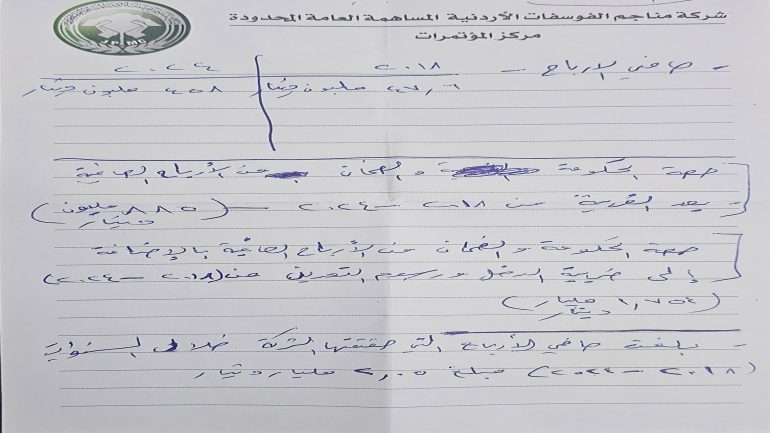 شركة مناجم الفوسفات الأردنية المساهمة العامة المحدودة
مركز المؤتمرات
- صافي الارباح - ٢٠١٨ ٢٠٢٤
مليون دينار ٤٥٨ مليون دينار
حصة الحكومة والضمان من الأرباح الصافية
بعد الضريبة من ٢٠١٨ - ٢٠٢٤ - (٨٨٥ مليون
دينار)
حصة الحكومة والضمان من الأرباح الصافية بالإضافة
إلى ضريبة الدخل ورسوم التعدين من (٢٠١٨ - ٢٠٢٤)
(١,٧٥٤ مليار
دينار)
- بلغت صافي الأرباح التي حققتها الشركة خلال السنوات
(٢٠١٨ - ٢٠٢٤) مبلغ ٢,٠٥ مليار دينار